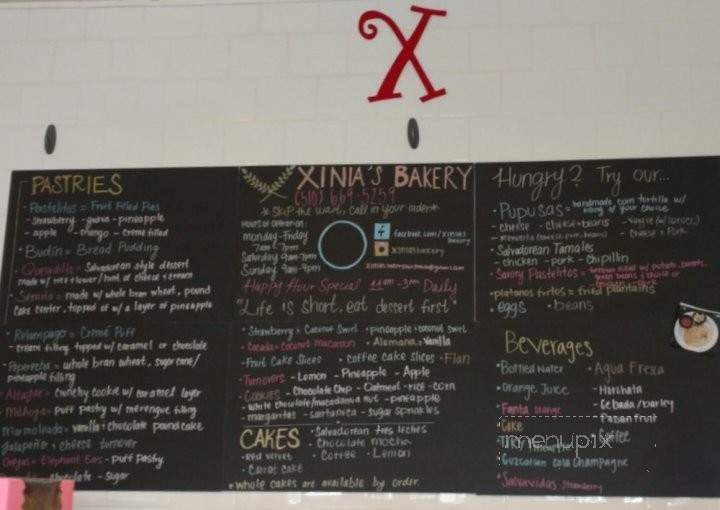 X
PASTRIES
· Pastelitos = Fruit Filled Pies
- Strawberry - guava - pineapple
- apple - mango - creme filled
· Budin = Bread Pudding
· Quesadilla = Salvadorean style dessert
made w/ rice flower/hint of cheese + cream
· Semita = made w/ whole bean wheat, pound
cake center, topped of w/ a layer of pineapple
· Relampago = Creme Puff
- cream filling topped w/ caramel or chocolate
· Peperecha = whole bean wheat, sugar cane/
pineapple filling
crunchy cookie w/ caramel layer
puff pastry w/ merengue filling
Marmoleada = vanilla + chocolate pound cake
Jalapeño + cheese turnover
Orejas = Elephant Ears - puff pastry
chocolate - sugar
XINIA'S BAKERY
(510) 669-5259
*Skip the wait, call in your order*
Hours of Operation:
Monday-Friday
7am - 7pm
Saturday 9am-7pm
Sunday 9am-4pm
facebook.com/xinias
bakery
xiniasbakery
Happy Hour Special 11am-3pm Daily
"Life is short, eat dessert first"
· Strawberry + Coconut Swirl · pineapple + coconut swirl
· Cocada = Coconut macaroon · Alemana = Vanilla
· Fruit Cake Slices · coffee cake slices · Flan
· Turnovers - Lemon - Pineapple - Apple
· Cookies - Chocolate Chip - Oatmeal - rice - corn
- white chocolate/macadamia nut - pineapple
- margaritas - santanica - sugar sprinkles
CAKES
· Salvadorean tres leches
· Chocolate mocha
· Red Velvet · Coffee · Lemon
· Carrot Cake
* whole cakes are available by order
Hungry? Try our...
· Pupusas = handmade corn tortilla w/
filling of your choice
- cheese - cheese + beans
- cheese + pork
· Salvadorean Tamales
- chicken - pork - chipilin
· Savory Pastelitos =
· platanos fritos = fried plantains
· eggs · beans
Beverages
· Bottled Water · Agua Fresca
· Orange Juice - Horchata
· Fanta orange - Cebada/barley
· Coke - Passnfruit
Coffee
menupix
· Cuzcatlan Cola Champagne
· Salvavidas strawberry